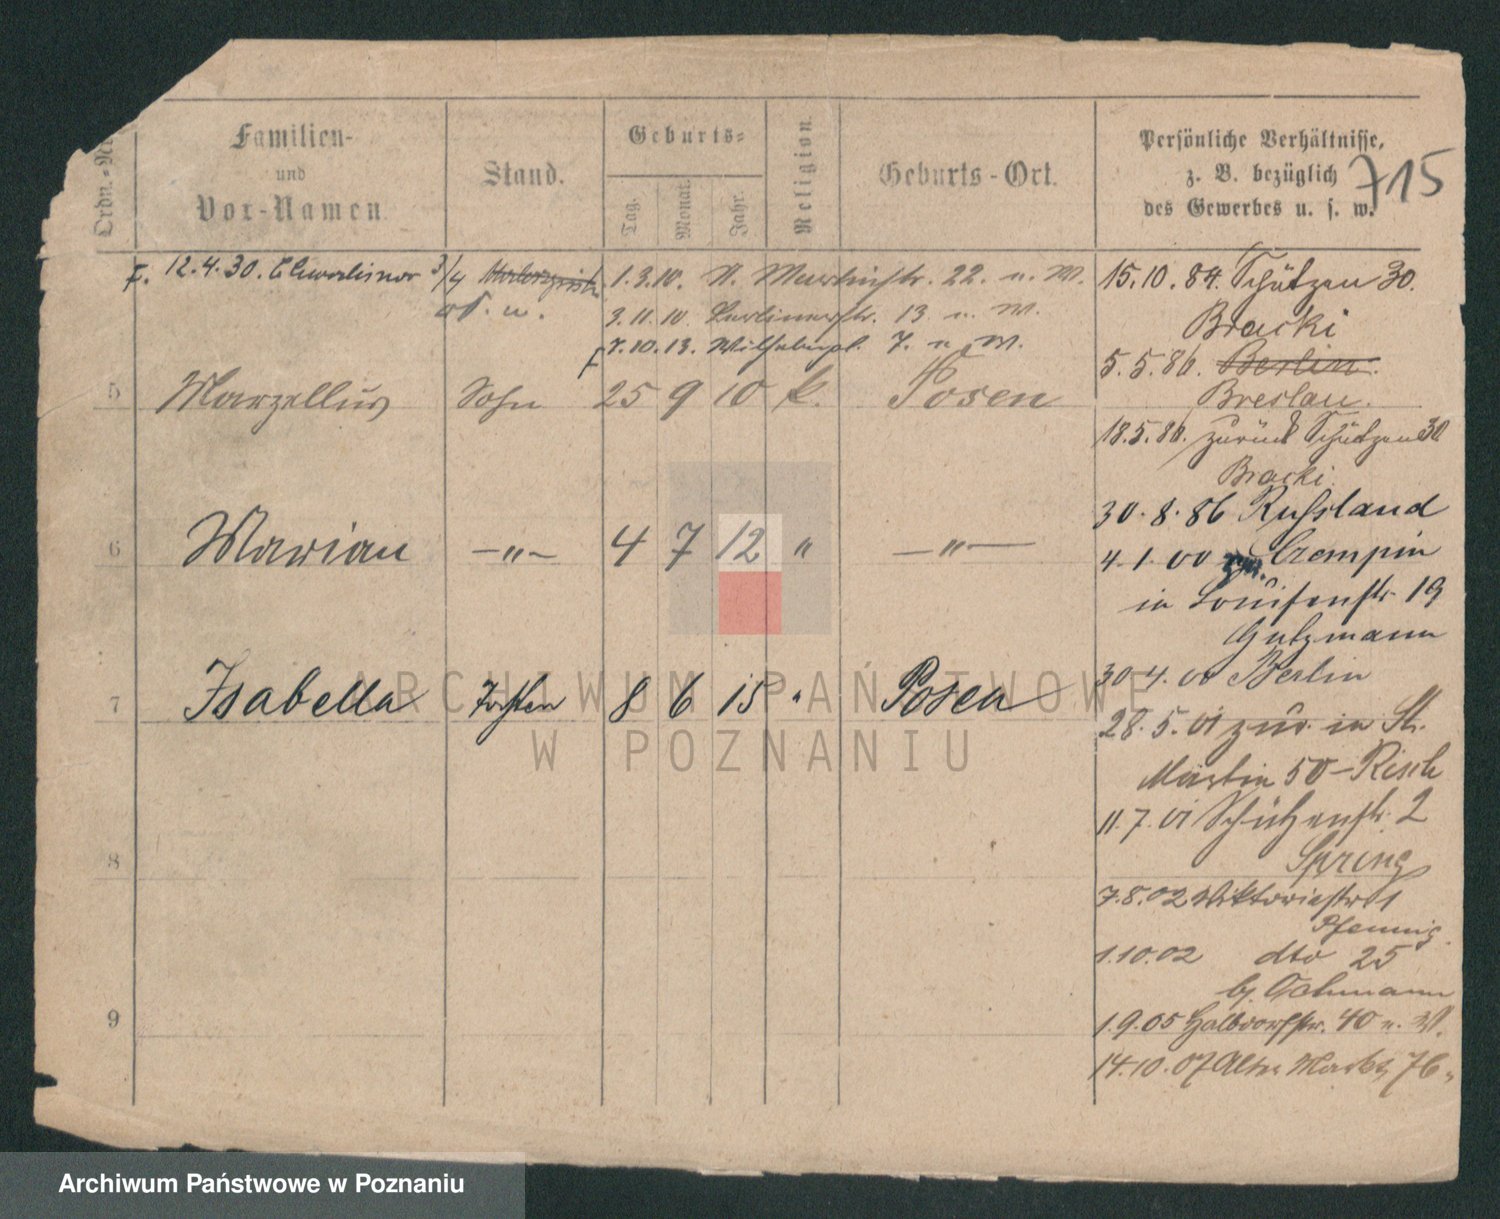 Ordn.-Nr.
Familien-
und
Vor-Namen
Stand.
Geburts-
Tag.
Monat.
Jahr.
Religion
Geburts-Ort.
Persönliche Verhältnisse,
z. B. bezüglich
des Gewerbes u. s. w.
715
F. 12.4.30. 3/4
1.3.10. St. Martinstr. 22. u. W.
3.11.10. Berlinerstr. 13 u. W.
7.10.13. Wilhelmpl. 7. u W.
5 Marzellus Sohn 25 9 10 k. Posen
6 Marian —"— 4 7 12 " —"—
7 Isabella Tochter 8 6 15 " Posen
8
9
15.10.84. Schützen 30.
Bracki
5.5.86. Berlin.
Breslau.
18.5.86. zurück Schützen 30
Bracki
30.8.86 Russland
4.1.00 Czempin
in Louisenstr. 19
Gutzmann
30.4.00 Berlin
28.5.01 zur. in St.
Martin 50 – Risch
11.7.01 Schützenstr. 2
Spring
7.8.02 Viktoriastr 1
Pfennig.
1.10.02 dto 25
b.
1.9.05 Halbdorfstr. 40 u. W.
14.10.07 Alter Markt 76.
ARCHIWUM PAŃSTWOWE
W POZNANIU
Archiwum Państwowe w Poznaniu